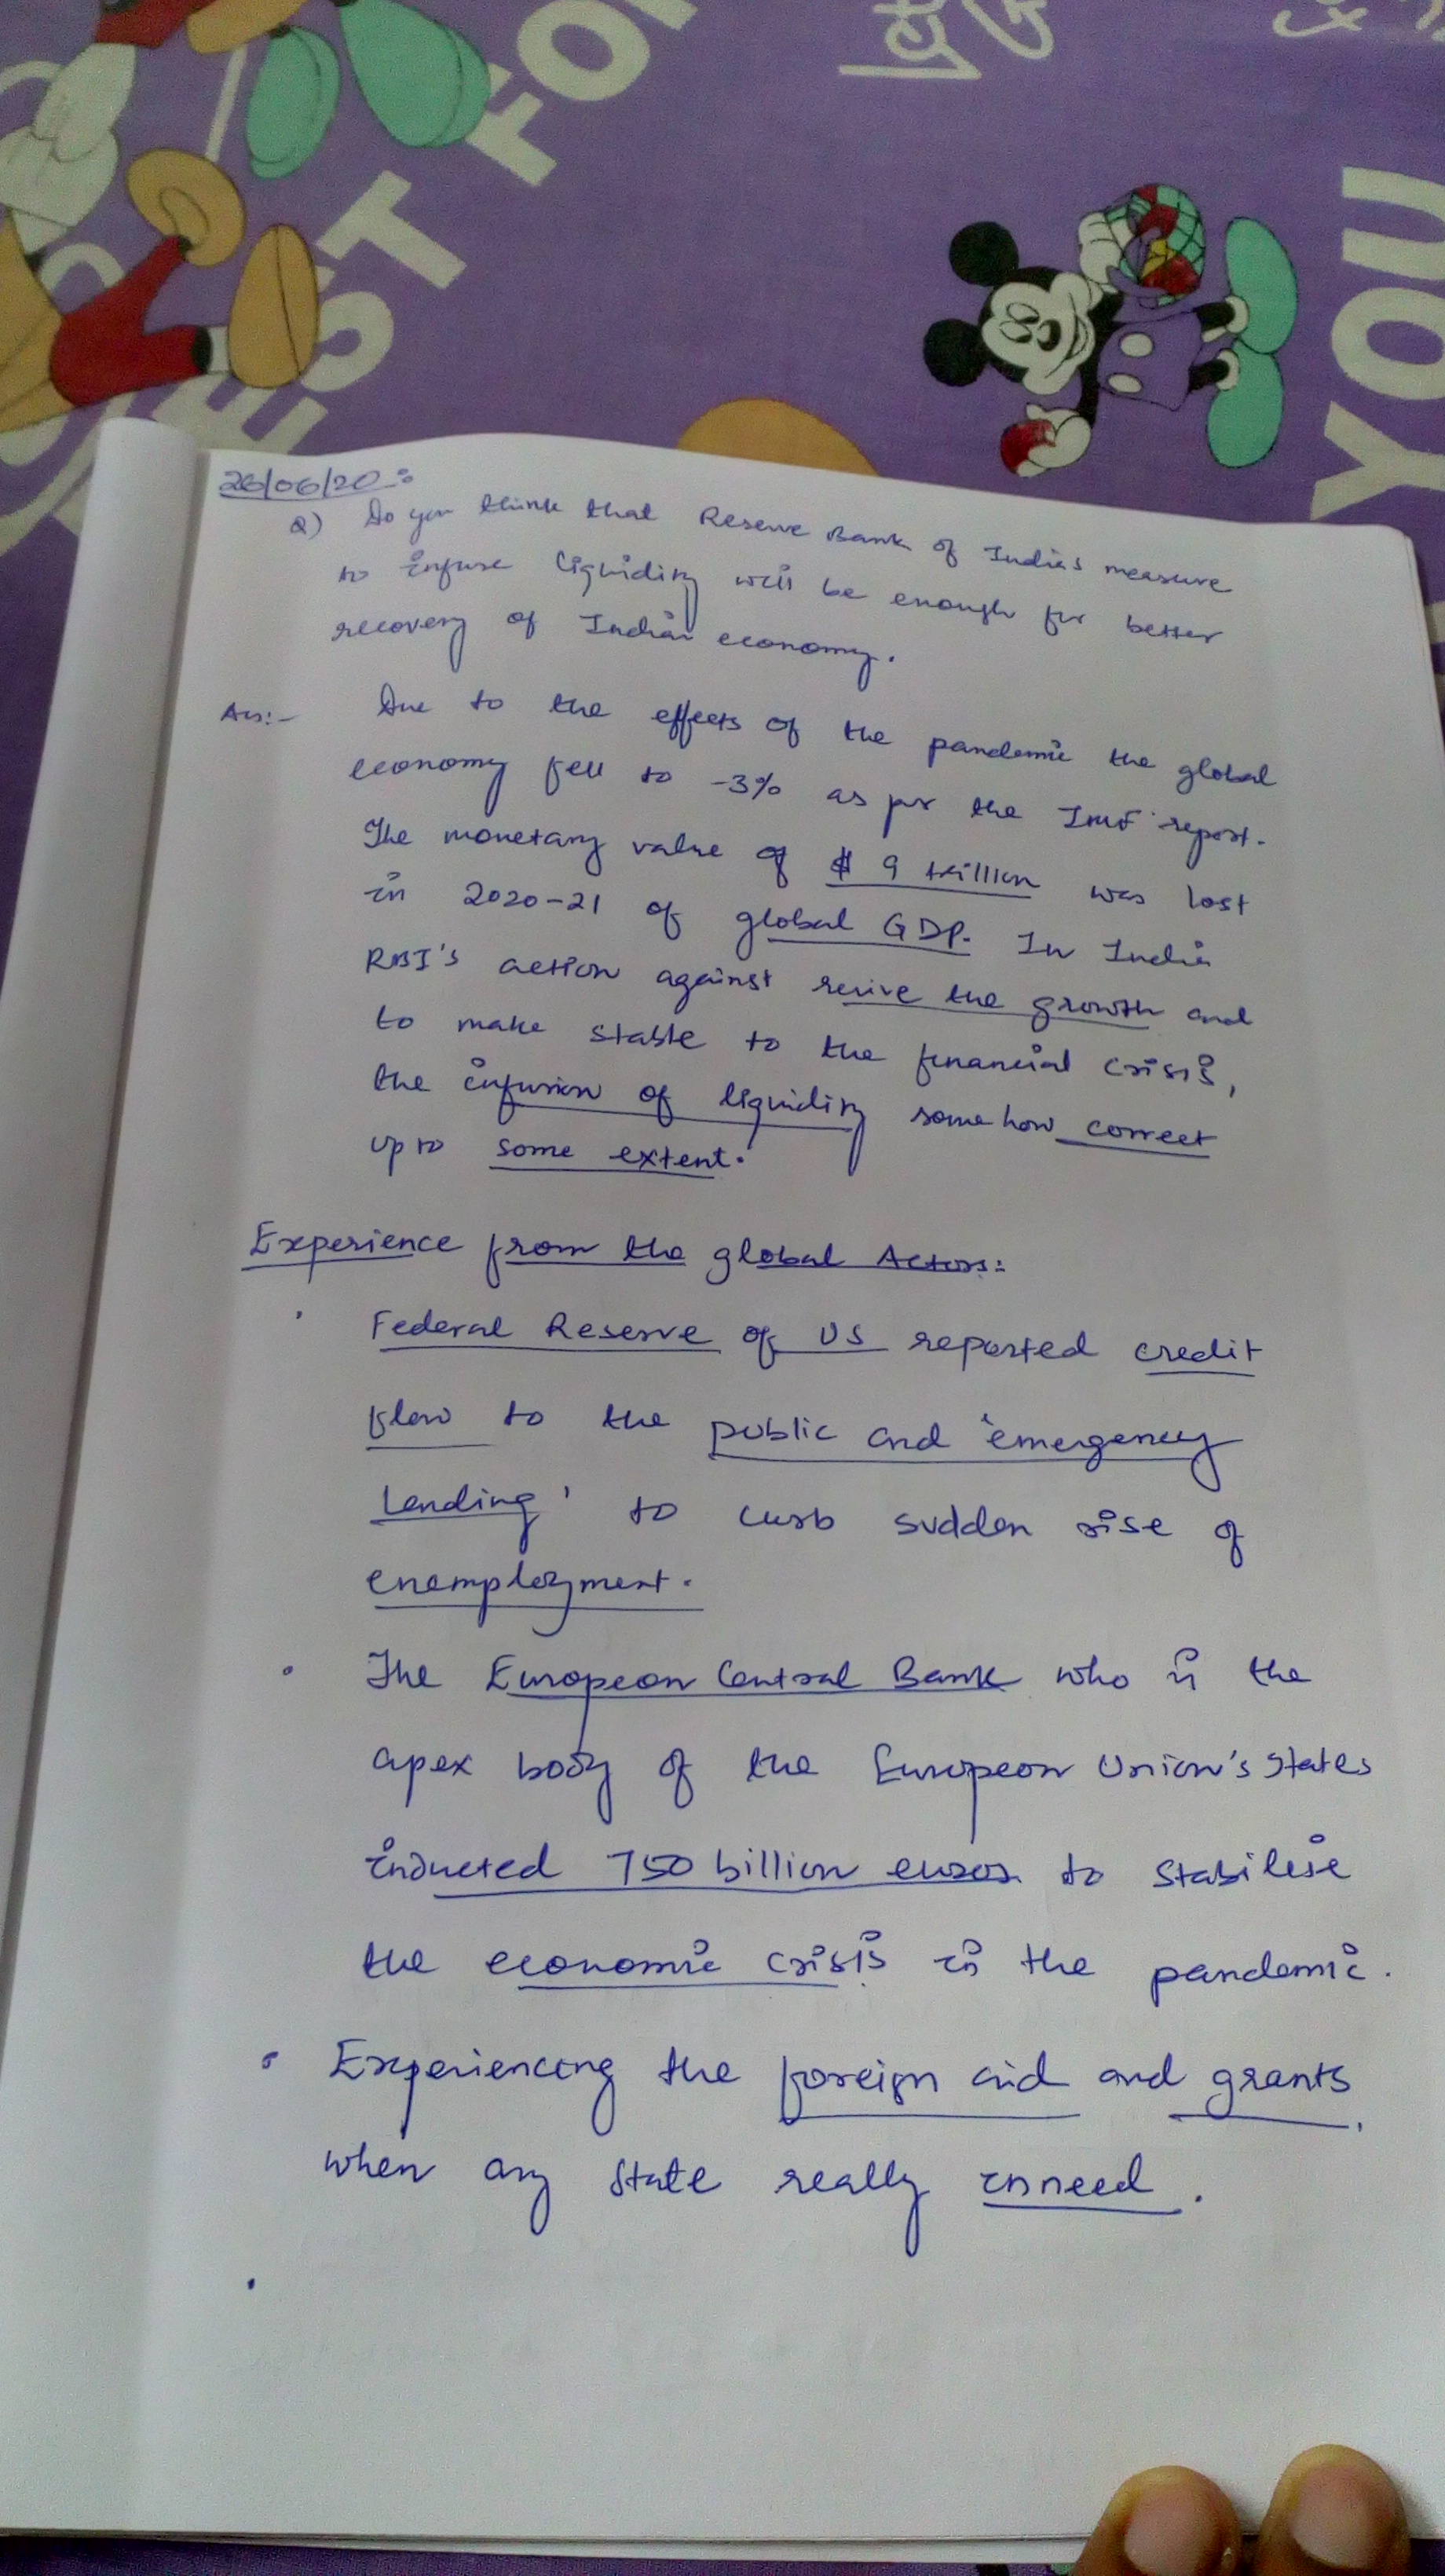 EST FOR
YOU
26/06/20:-
Q) Do you think that Reserve Bank of India's measure
to infuse liquidity will be enough for better
recovery of Indian economy.
Ans:- Due to the effects of the pandemic the global
economy fell to -3% as per the IMF report.
The monetary value of $ 9 trillion was lost
in 2020-21 of global GDP. In India
RBI's action against revive the growth and
to make stable to the financial crisis,
the infusion of liquidity somehow correct
upto some extent.
Experience from the global Actors:
• Federal Reserve of US reported credit
flow to the public and 'emergency
Lending' to curb sudden rise of
enemployment.
• The European Central Bank who is the
apex body of the European Union's States
inducted 750 billion euros to stabilise
the economic crisis in the pandemic.
• Experiencing the foreign aid and grants,
when any state really in need.